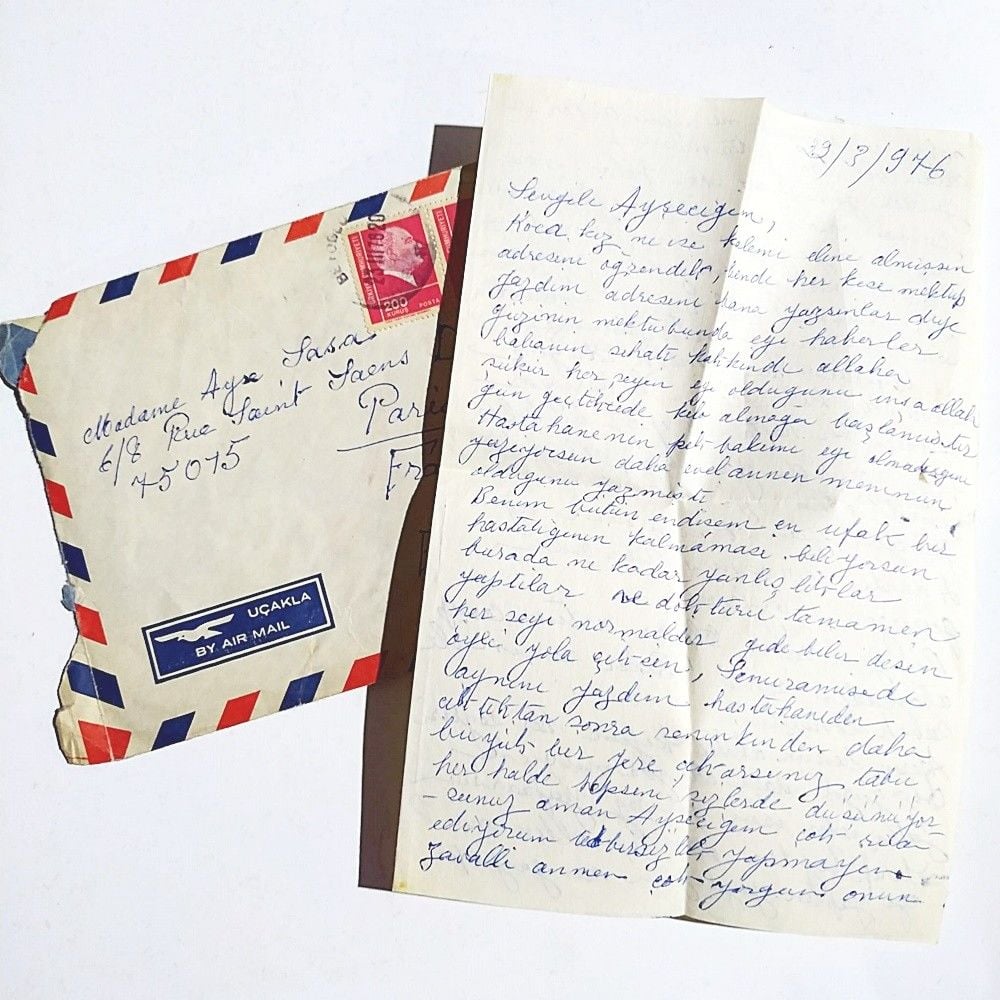 BEYOĞLU
TÜRKİYE CUMHURİYETİ
200
KURUŞ POSTA
Madame Ayşe Şasa
6/8 Rue Saint Saens
75015 Paris
UÇAKLA
BY AIR MAIL
29/3/976
Sevgili Ayşeciğim,
Koca kız ne ise kalemi eline almışsin
adresini öğrendik, bende her kese mektup
yazdım adresini sana yazsınlar diye
mektubunda eyi haberler
babanin sihati hakkinde allaha
şükür her şeyin eyi olduğunu inşaallah
gün geçtikcede kilo almağa başlamıştır
Hastahanenin pek bakımı eyi olmadığını
yazıyorsun daha evel annen memnun
olduğunu yazmıştı
Benim bütün endişem en ufak bir
hastaliğinin kalmáması biliyorsun
burada ne kadar yanlışliklar
yaptılar ve doktoru tamamen
her şeyi normaldir gidebilir desin
öyle yola çıksin, Semiramisede
aynını yazdım hastahaneden
çıktıktan sonra seninkinden daha
büyük bir yere çıkarsınız tabii
her halde hepsini sizlerde düşünüyor-
-sunuz aman Ayşeciğim çok rica
ediyorum tedbirsizlik yapmayın
Zavallı annen çok yorgun onun